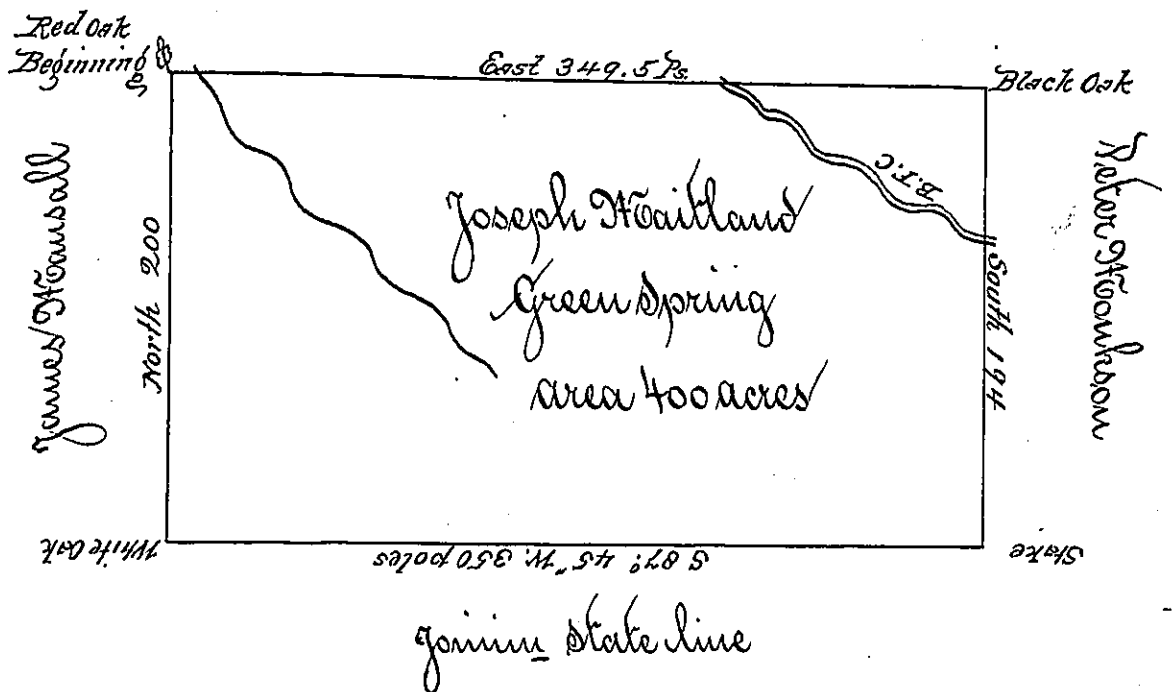 Red Oak
Beginning
East 349.5 Ps.
Black Oak
James Mansall
North 200
Joseph Maitland
Green Spring
area 400 acres
B.T.C
South 194
Peter Monkson
White Oak
S 87° 45" W. 350 poles
Stake
Joinin state line